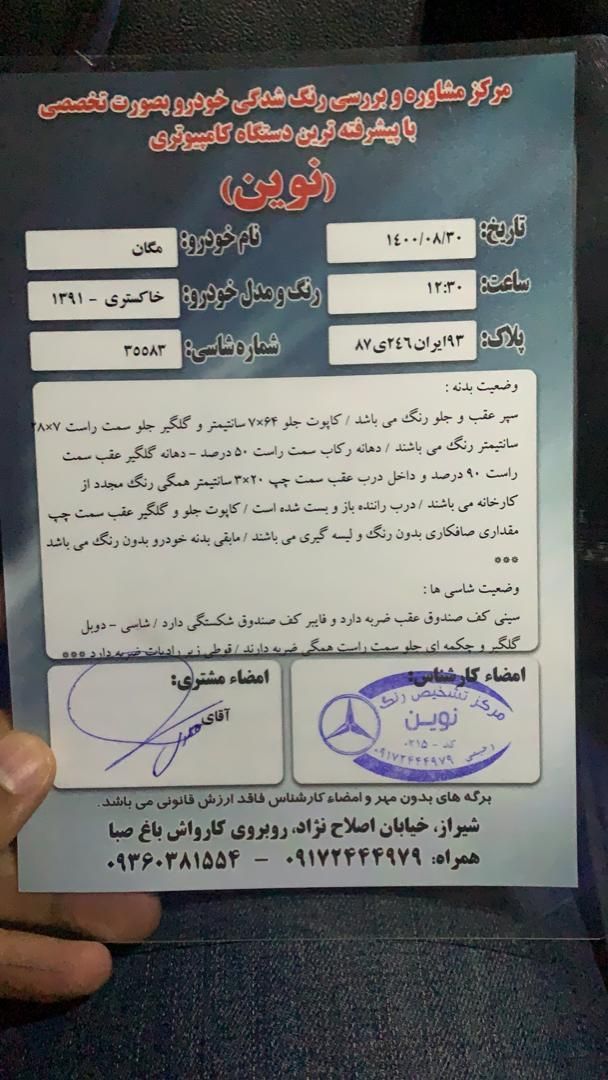 مرکز مشاوره و بررسی رنگ شدگی خودرو بصورت تخصصی
با پیشرفته ترین دستگاه کامپیوتری
(نوین)
تاریخ: ١٤٠٠/٠٨/٣٠ نام خودرو: مگان
ساعت: ١٢:٣٠ رنگ و مدل خودرو: خاکستری - ١٣٩١
پلاک: ٩٣ایران٢٤٦ی٨٧ شماره شاسی: ٣٥٥٨٣
وضعیت بدنه :
سپر عقب و جلو رنگ می باشد / کاپوت جلو ۶۴×۷ سانتیمتر و گلگیر جلو سمت راست ۷×۲۸
سانتیمتر رنگ می باشند / دهانه رکاب سمت راست ۵۰ درصد - دهانه گلگیر عقب سمت
راست ۹۰ درصد و داخل درب عقب سمت چپ ۲۰×۳ سانتیمتر همگی رنگ مجدد از
کارخانه می باشند / درب راننده باز و بست شده است / کاپوت جلو و گلگیر عقب سمت چپ
مقداری صافکاری بدون رنگ و لیسه گیری می باشند / مابقی بدنه خودرو بدون رنگ می باشد
***
وضعیت شاسی ها :
سینی کف صندوق عقب ضربه دارد و فایبر کف صندوق شکستگی دارد / شاسی - دوبل
گلگیر و چکمه ای جلو سمت راست همگی ضربه دارند / قوطی زیر رادیات ضربه دارد ***
امضاء کارشناس: امضاء مشتری:
آقای
مرکز تشخیص رنگ
نوین
کد - ٠٢١٥
رحیمی ٠٩١٧٢٤٤٤٩٧٩
برگه های بدون مهر و امضاء کارشناس فاقد ارزش قانونی می باشد.
شیراز، خیابان اصلاح نژاد، روبروی کارواش باغ صبا
همراه: ۰۹۱۷۲۴۴۴۹۷۹ - ۰۹۳۶۰۳۸۱۵۵۴